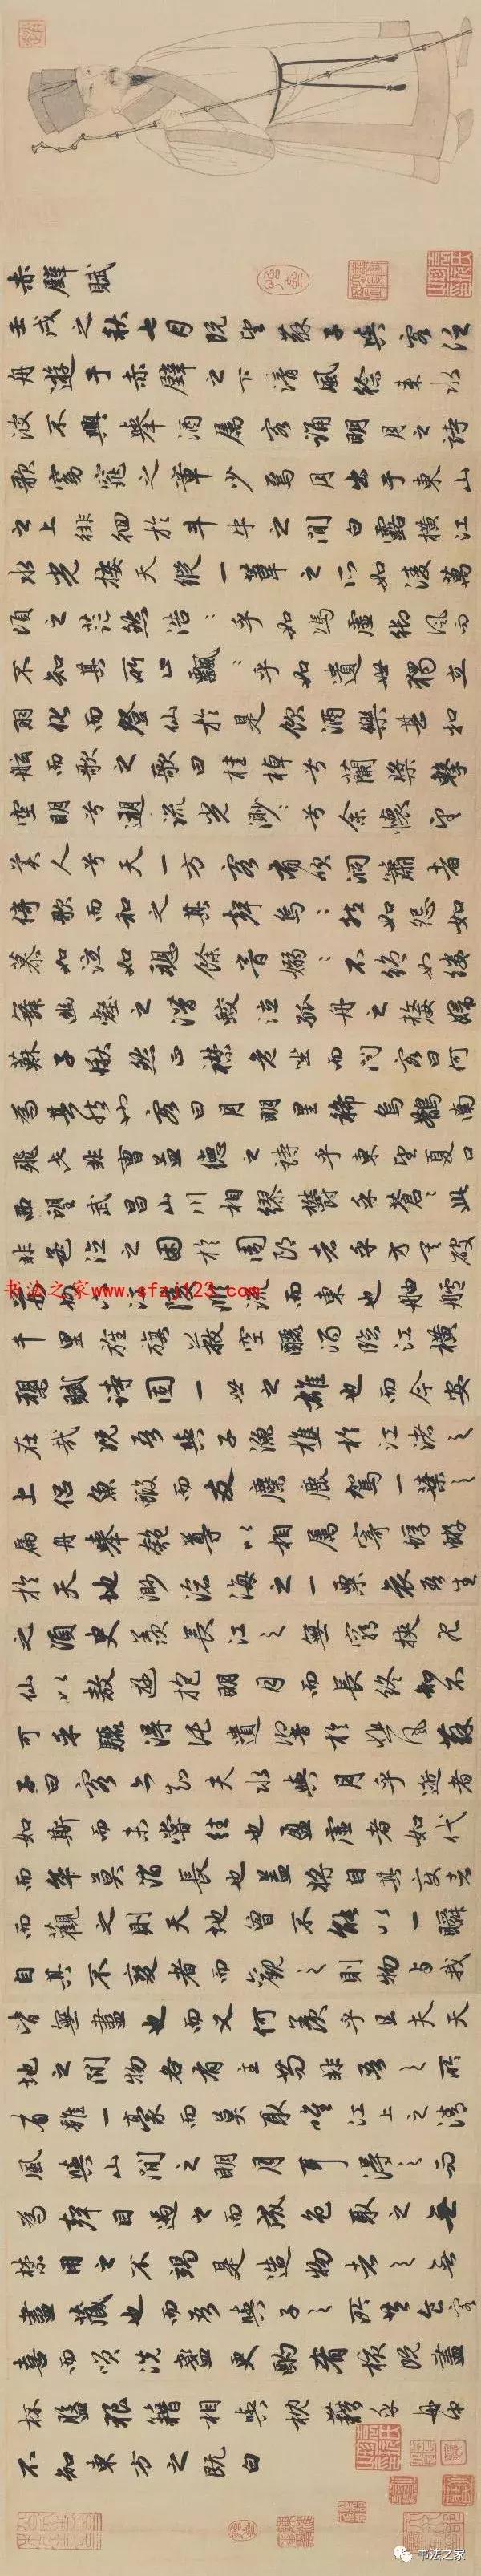 赤壁賦
壬戌之秋七月既望蘇子與客泛
舟遊于赤壁之下清風徐來水
波不興舉酒屬客誦明月之詩
歌窈窕之章少焉月出于東山
之上徘徊於斗牛之間白露橫江
水光接天縱一葦之所如凌萬
頃之茫然浩〻乎如馮虛御風而
不知其所止飄〻乎如遺世獨立
羽化而登仙於是飲酒樂甚扣
舷而歌之歌曰桂棹兮蘭槳擊
空明兮遡流光渺〻兮余懷望
美人兮天一方客有吹洞簫者
倚歌而和之其聲烏〻然如怨如
慕如泣如訴餘音嫋〻不絕如縷
舞幽壑之潛蛟泣孤舟之嫠婦
蘇子愀然正襟危坐而問客曰何
為其然也客曰月明星稀烏鵲南
飛此非曹孟德之詩乎東望夏口
西望武昌山川相繆鬱乎蒼〻此
非孟德之困於周郎者乎方其破
书法之家www.sfzj123.com
陵順流而東也舳艫
千里旌旗蔽空釃酒臨江橫
槊賦詩固一世之雄也而今安
在哉況吾與子漁樵於江渚之
上侶魚蝦而友麋鹿駕一葉之
扁舟舉匏尊以相屬寄蜉蝣
於天地渺滄海之一粟哀吾生
之須臾羨長江之無窮挾飛
仙以遨遊抱明月而長終知不
可乎驟得託遺響於悲風蘇
子曰客亦知夫水與月乎逝者
如斯而未嘗往也盈虛者如代
而卒莫消長也蓋將自其變者
而觀之則天地曾不能以一瞬
自其不變者而觀之則物與我
皆無盡也而又何羨乎且夫天
地之間物各有主苟非吾之所
有雖一毫而莫取唯江上之清
風與山間之明月耳得之而
為聲目遇之而成色取之無
禁用之不竭是造物者之無
盡藏也而吾與子之所共食客
喜而笑洗盞更酌肴核既盡
杯盤狼籍相與枕藉乎舟中
不知東方之既白
书法之家